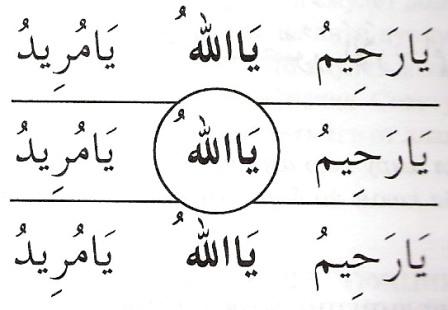 يَارَحِيمُ يَااللهُ يَامُرِيدُ
يَارَحِيمُ يَااللهُ يَامُرِيدُ
يَارَحِيمُ يَااللهُ يَامُرِيدُ